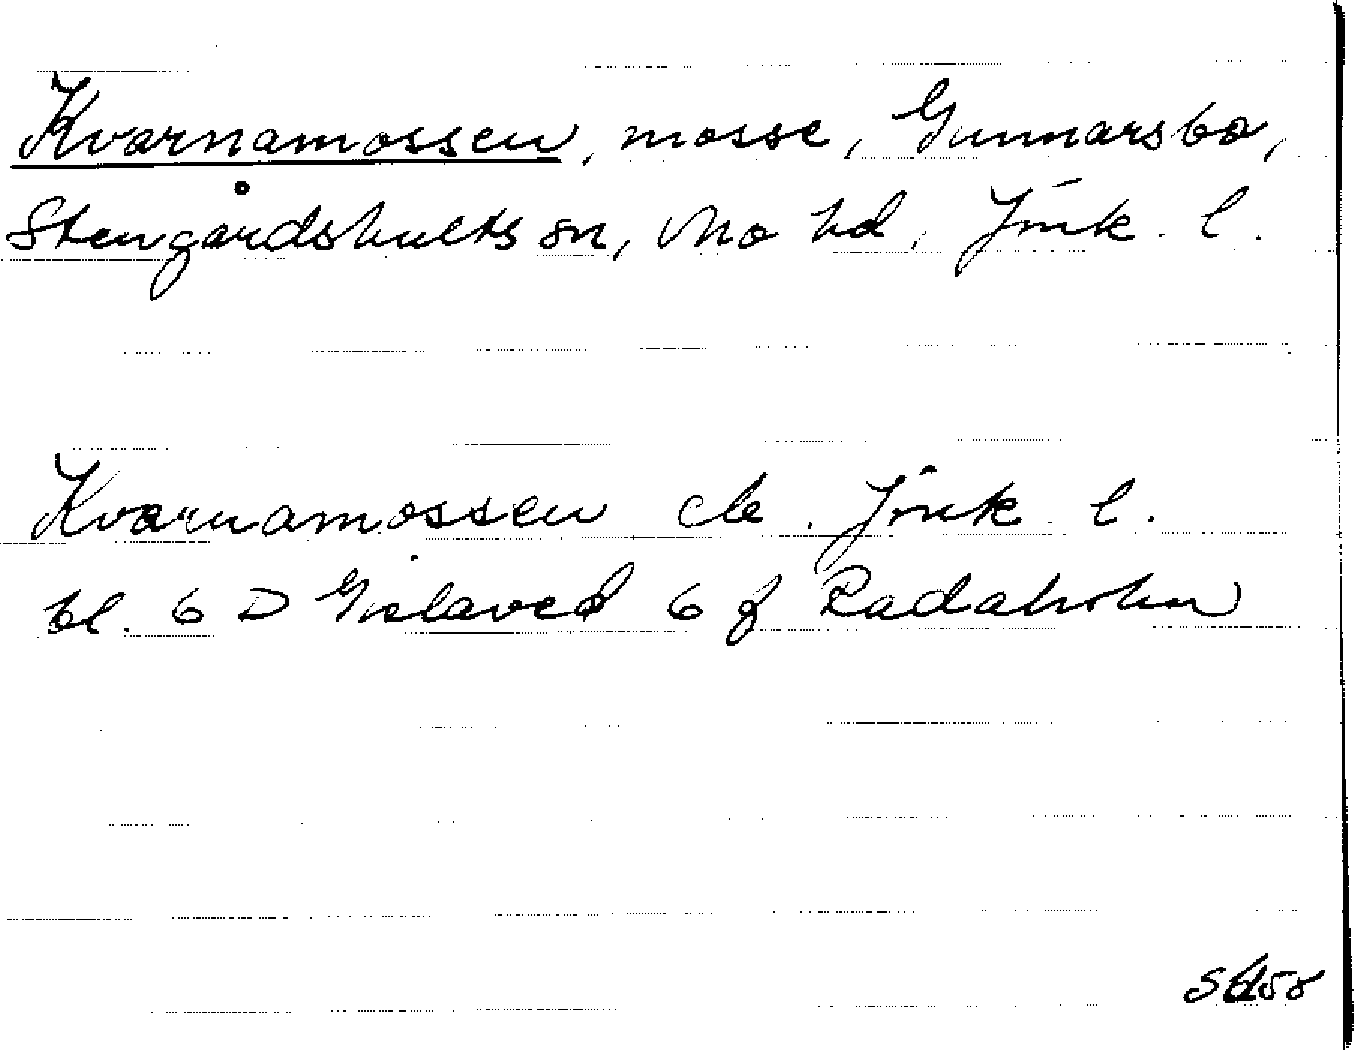 Kvarnamossen, mosse, Gunnarsbo,
Stengårdshults sn, Mo hd, Jönk. l.
Kvarnamossen ek. Jönk l.
bl. 6 D Gislaved 6 f Radaholm